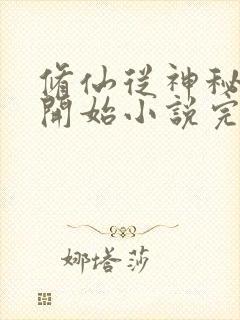 脩仙從神秘
開始小說完
娜塔莎